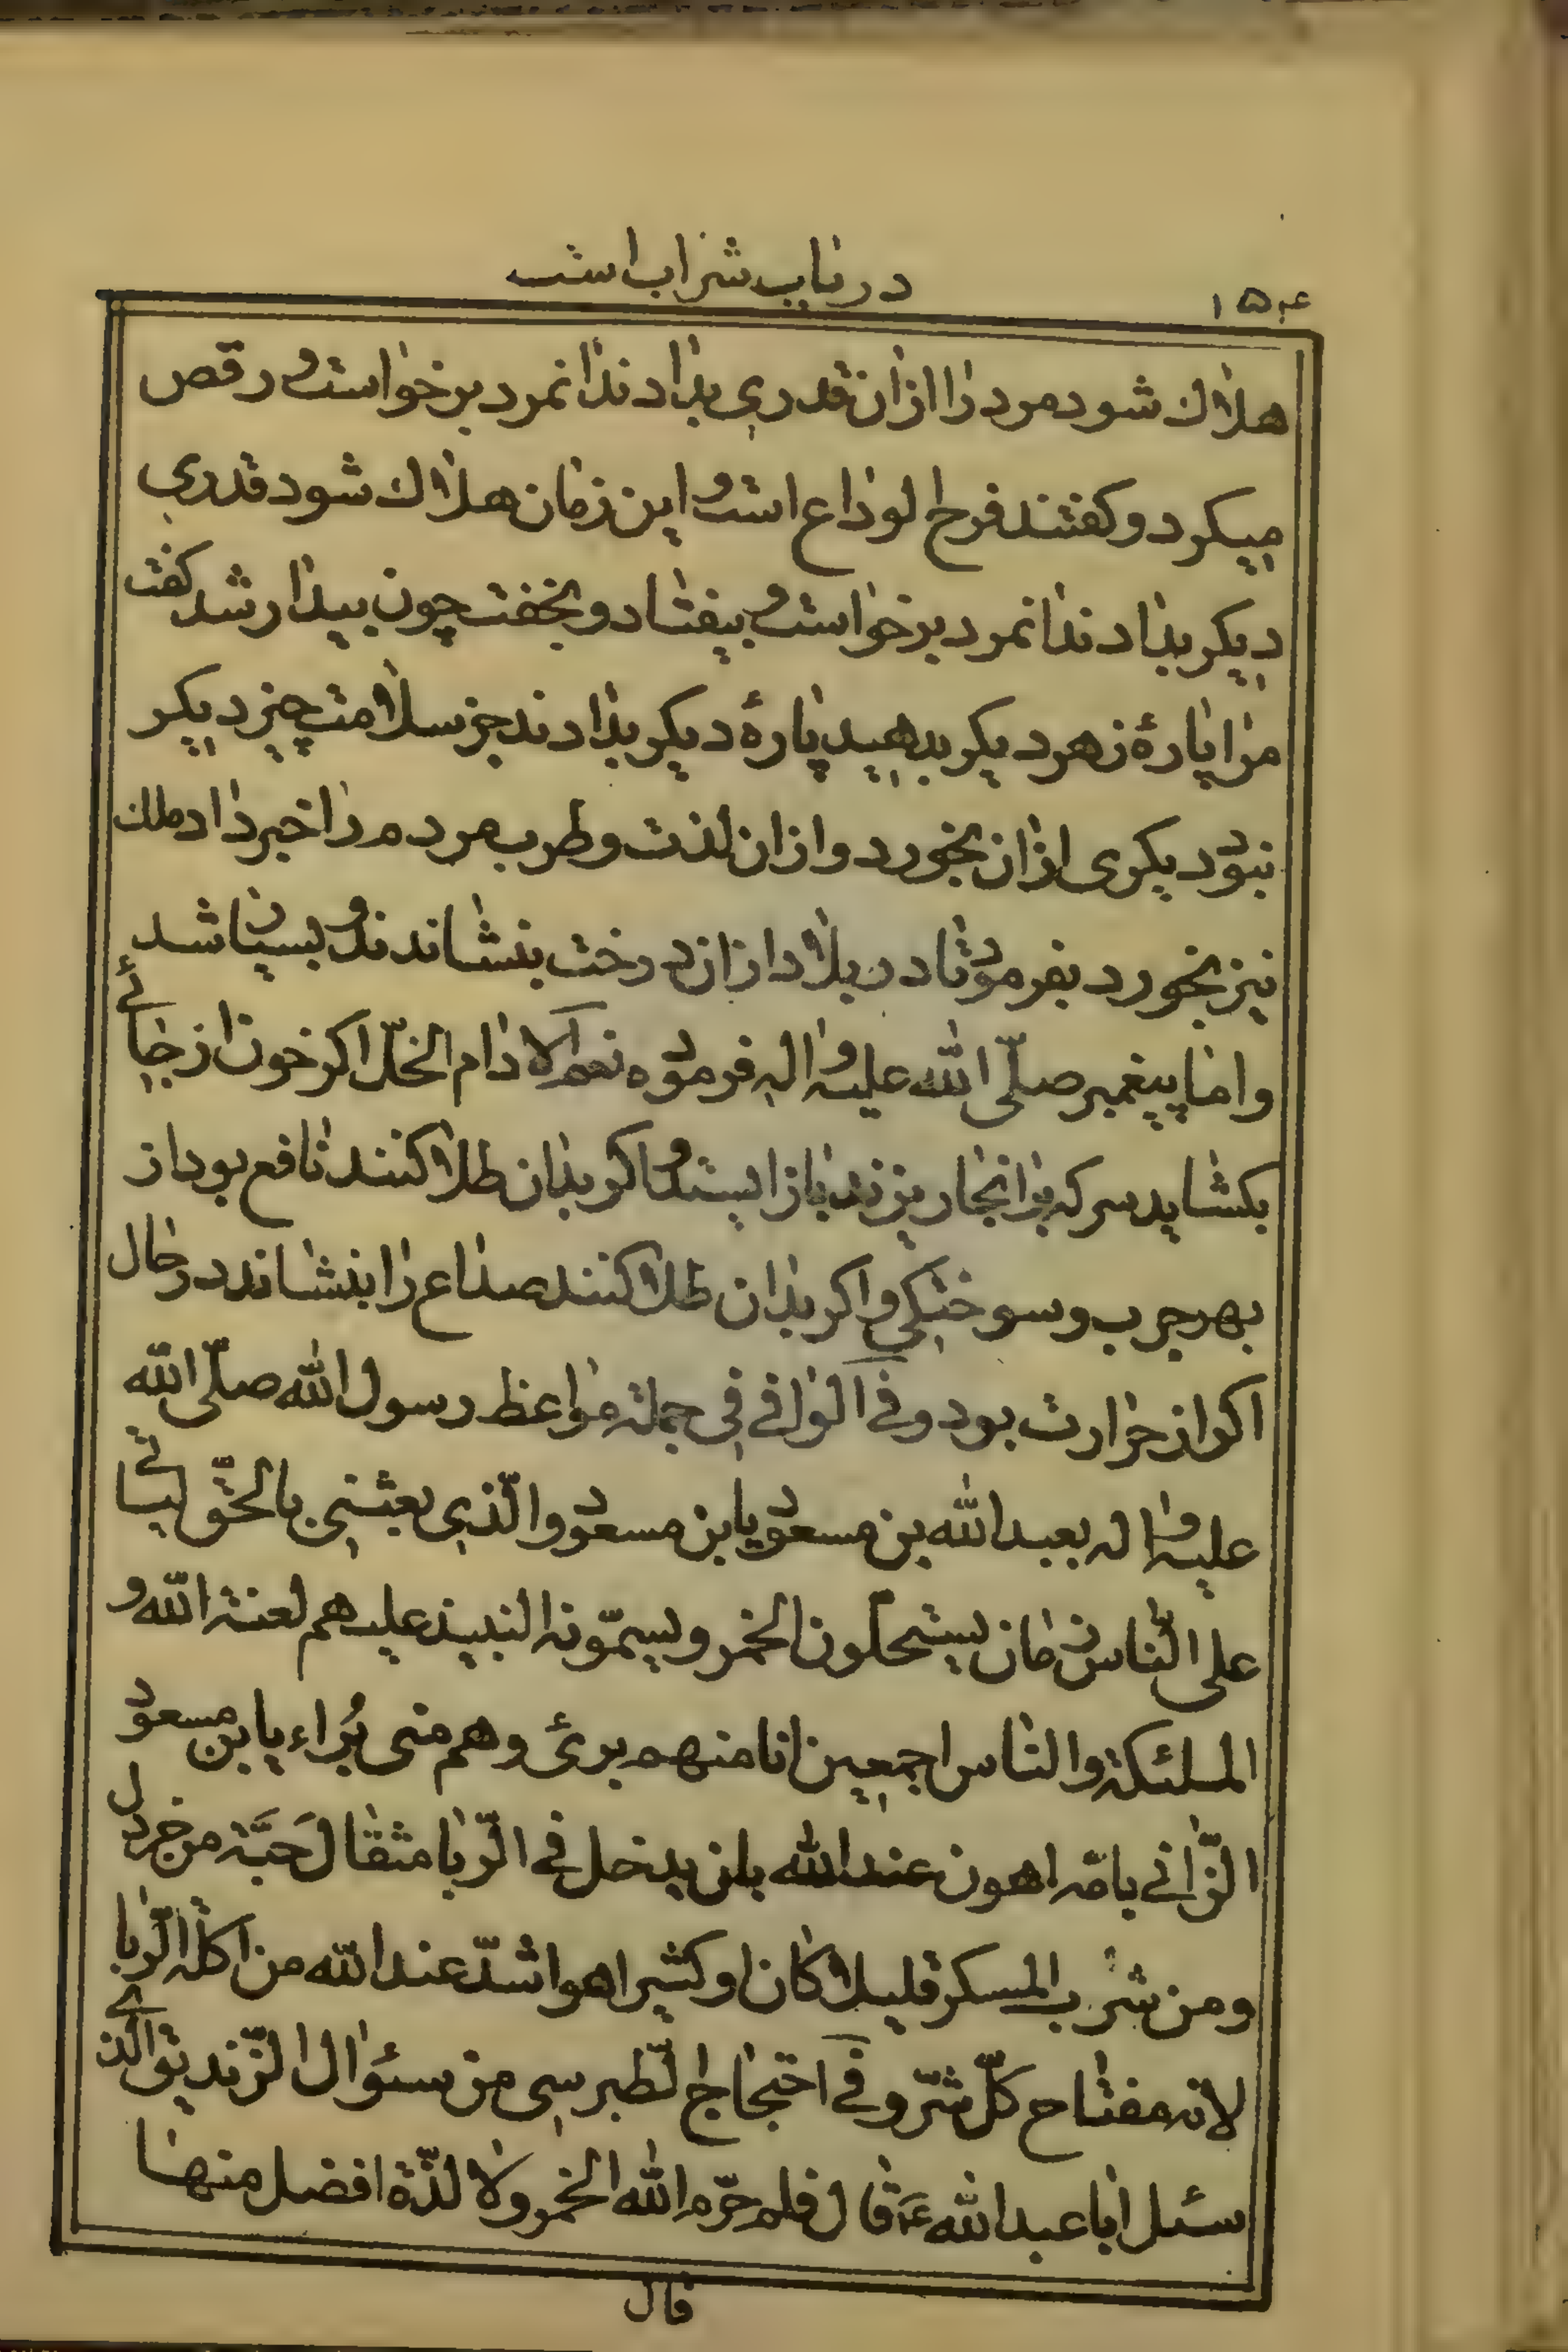 در باب شراب است
۱۵۴
هلاك شود مرد را از ان قدری بدادند انمرد برخواست و رقص
میکرد و کفتند فرح الوداع است و این زمان هلاك شود قدری
دیکر بدادند انمرد برخواست و بیفتاد و بخفت چون بیدار شد کفت
مرا پارهٔ زهر دیکر بدهید پارهٔ دیکر بدادند جز سلامت چیز دیکر
نبود دیکری از ان بخورد و از ان لذت و طرب مردم را خبر داد ملك
نیز بخورد بفرمود تا در بلاد از ان درخت بنشاندند و بسیار شد
و اما پیغمبر صلّی الله علیه و اله فرموده نعم الادام الخلّ اکر خون از جائے
بکشاید سرکه برانجا ریزند باز ایستد و اکر بدان طلا کنند نافع بود از
بهر جرب و سوختکی و اکر بدان طلا کنند صداع را بنشاند در حال
اکر از حرارت بود و فے الوافے فی جملة مواعظ رسول الله صلّی الله
علیه و اله بعبد الله بن مسعود یابن مسعود والّذی بعثنی بالحقّ لیاتے
علی النّاس زمان یستحلّون الخمر و یسمّونه النبیذ علیهم لعنة الله و
الملئکة والناس اجمعین انا منهم برئ وهم منی بُراء یابن مسعود
الزّانے بامّه اهون عند الله بان یدخل فے الرّبا مثقال حَبَّة من خردل
ومن شرب المسکر قلیلا کان او کثیرا هو اشدّ عند الله من اکلة الرّبا
لانه مفتاح کلّ شرّ و فے احتجاج الطّبرسی من سئوال الزّندیق الّذے
سئل ابا عبد الله ع قال فلم حرّم الله الخمر ولا لذّة افضل منها
قال